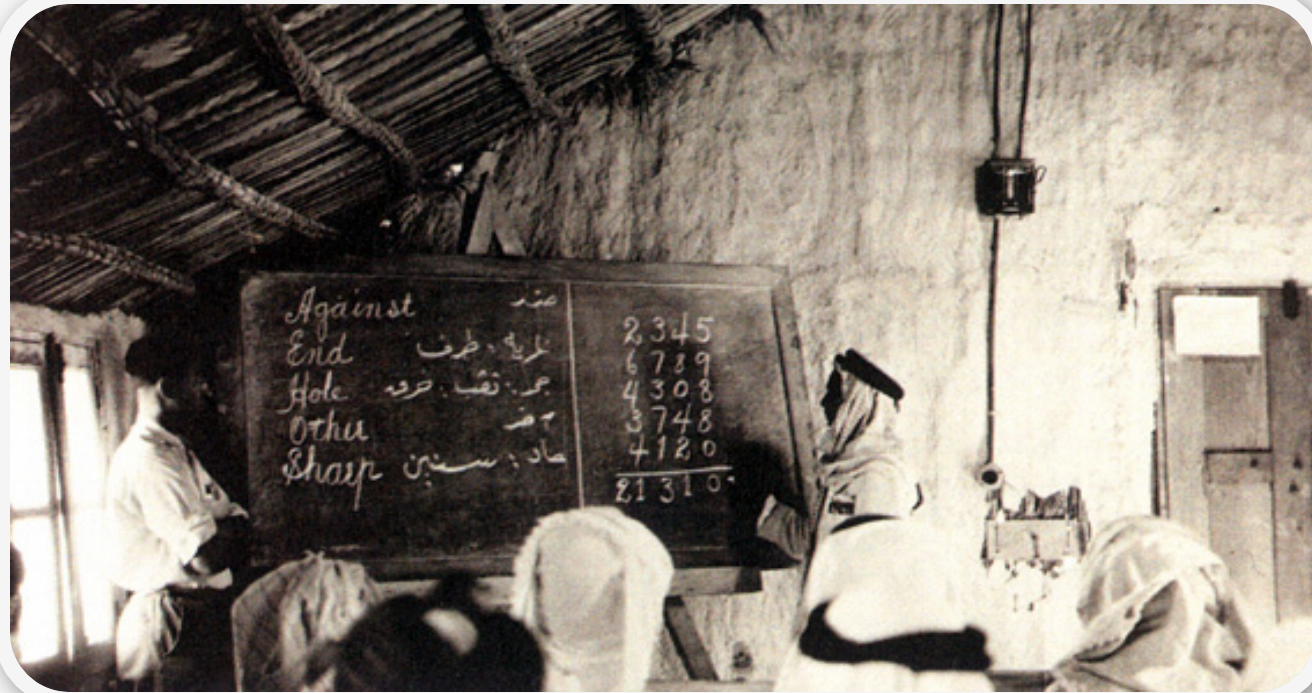 Against ضد
End نهايه ، طرف
Hole جحر : ثقب : خرق
Other آخر
Sharp حاد : سنين
2345
6789
4308
3748
4120
21310